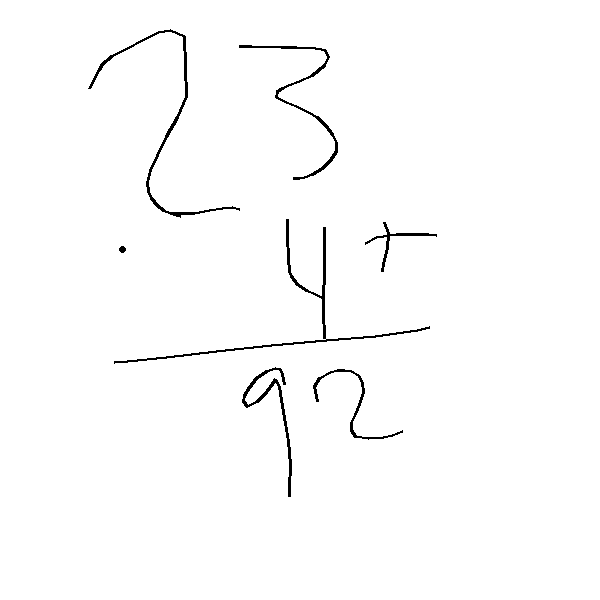 23
. 4 +
92